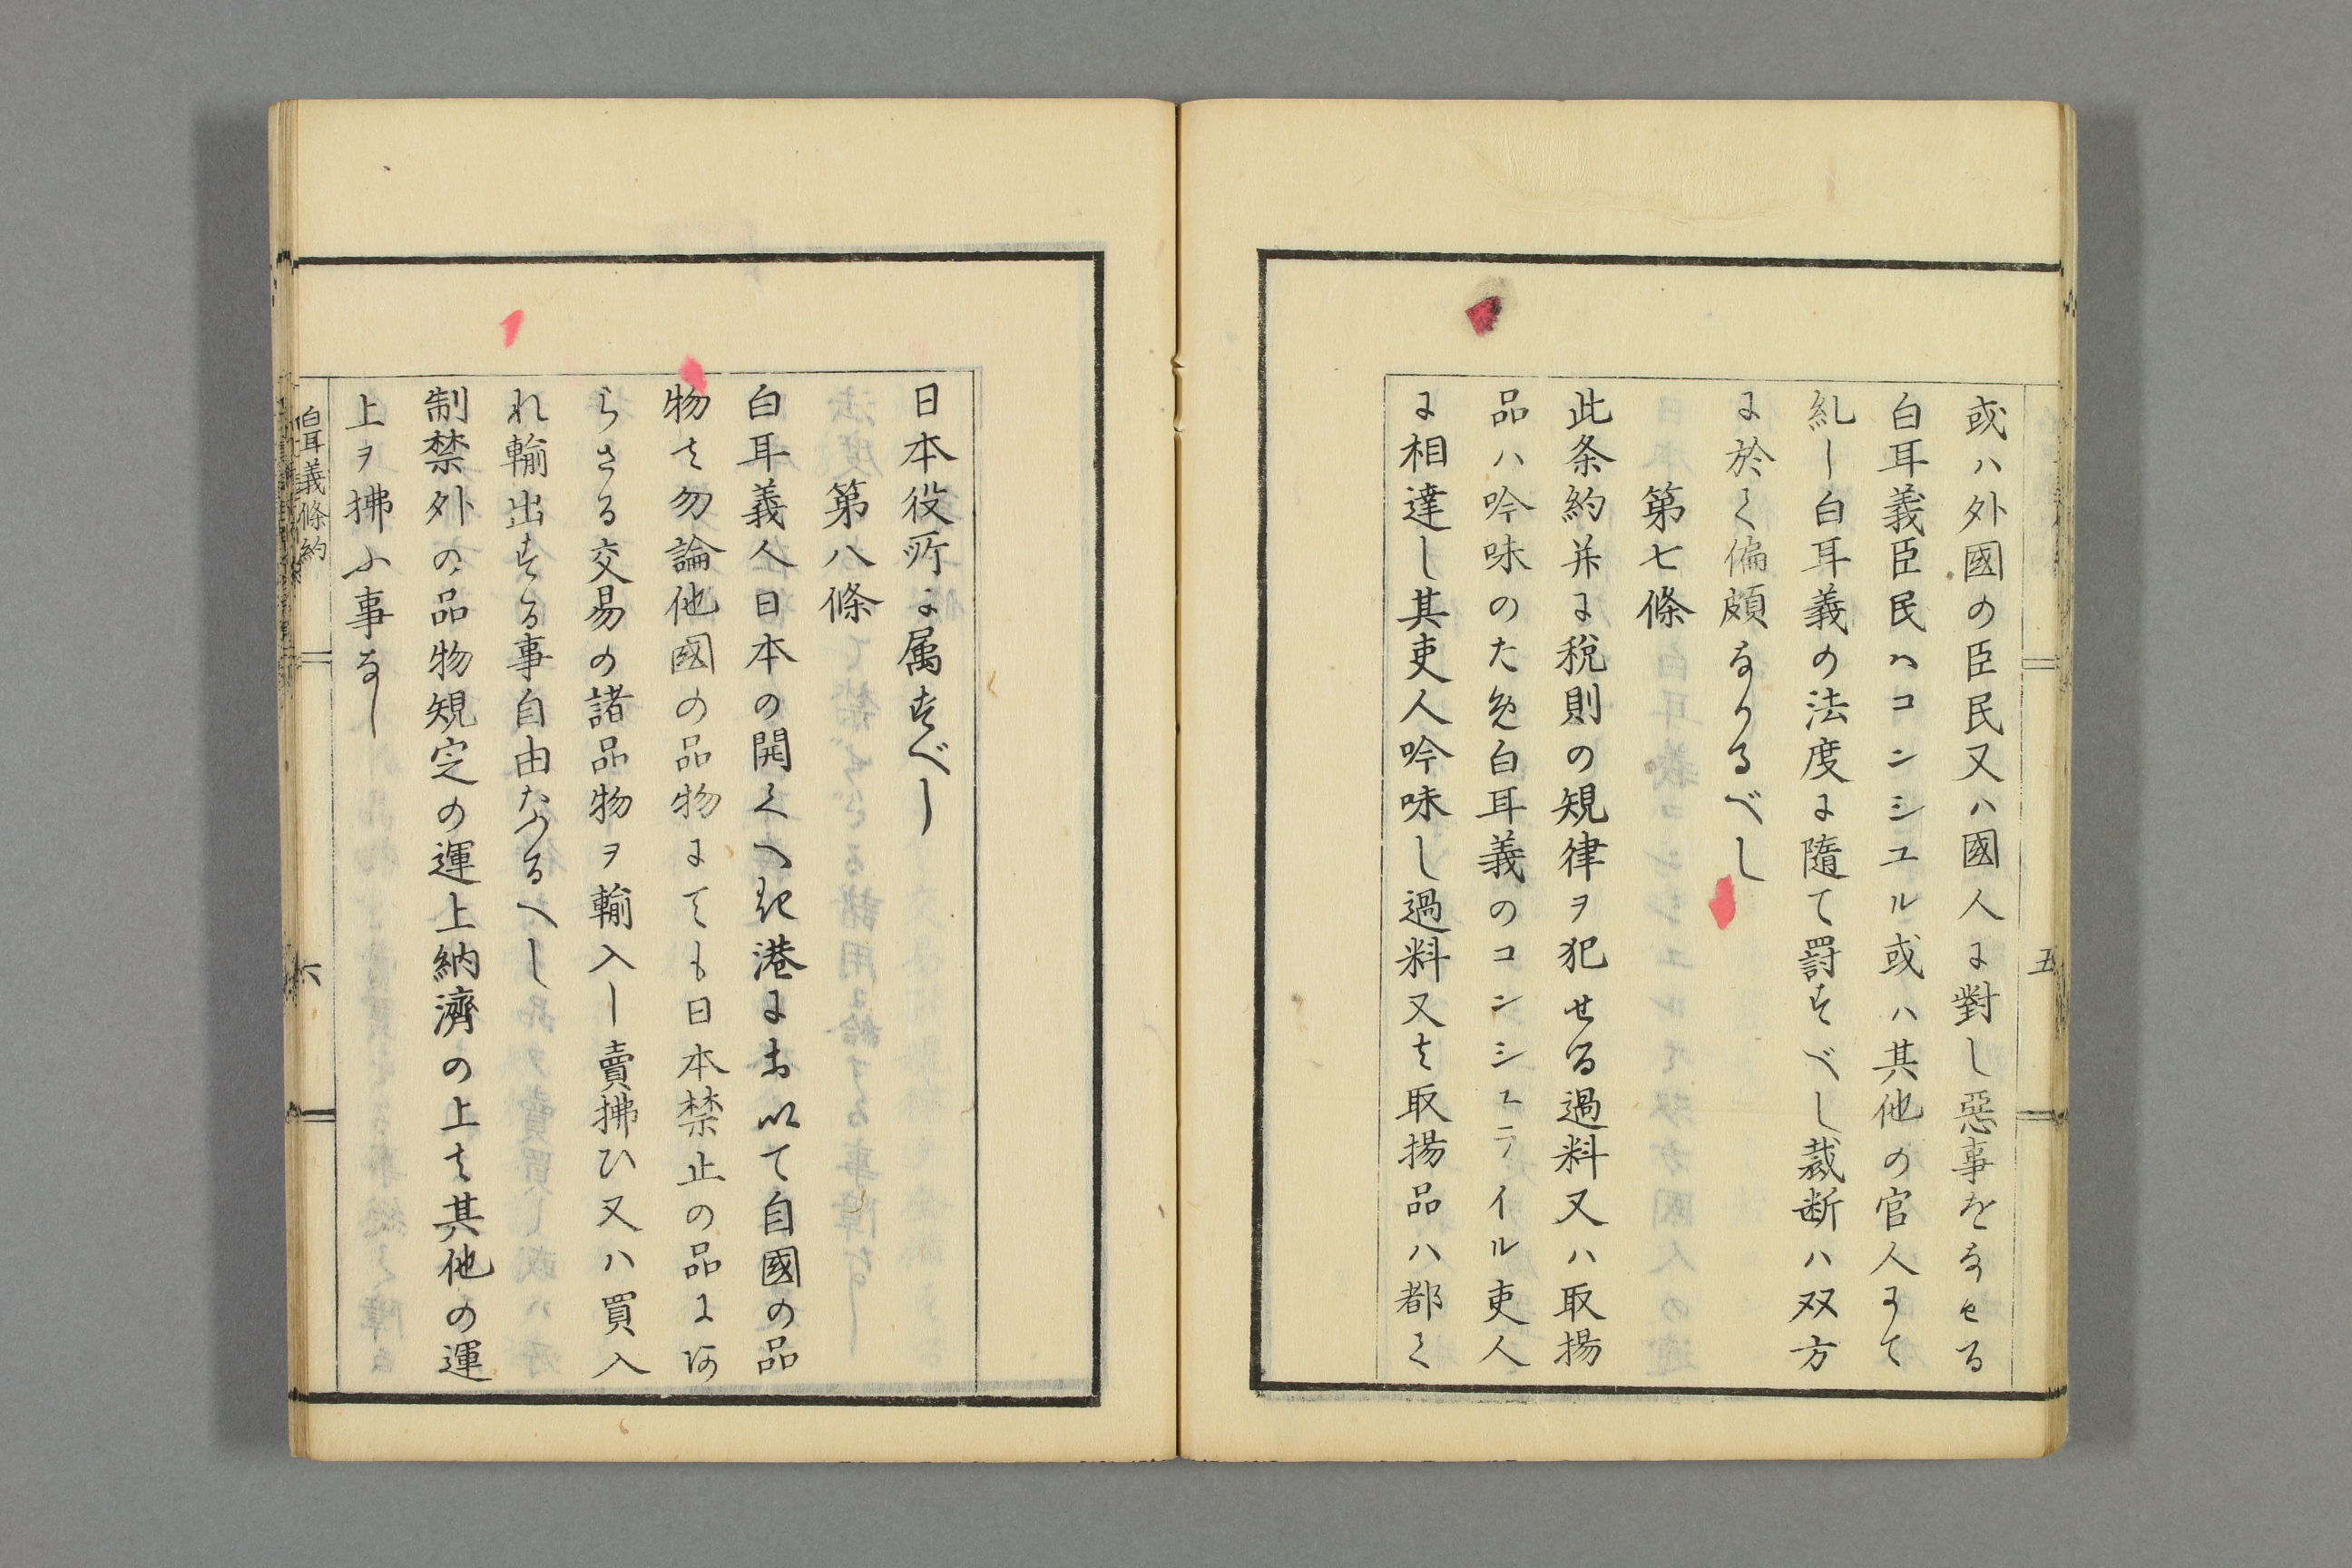 五
或ハ外國の臣民又ハ國人に對し惡事をなせる
白耳義臣民ハコンシユル或ハ其他の官人にて
糺し白耳義の法度に隨て罸すべし裁断ハ双方
に於て偏頗なかるべし
第七條
此条約并に税則の規律ヲ犯せる過料又ハ取揚
品ハ吟味のため白耳義のコンシュライル吏人
に相達し其吏人吟味し過料又は取揚品ハ都て
日本役所に属すべし
第八條
白耳義人日本の開くへき港におゐて自國の品
物は勿論他國の品物にても日本禁止の品にあ
らさる交易の諸品物ヲ輸入し賣拂ひ又ハ買入
れ輸出する事自由たるへし
制禁外の品物規定の運上納濟の上は其他の運
上ヲ拂ふ事なし
白耳義條約
六